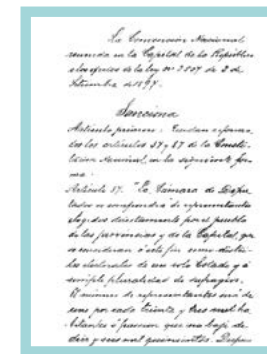 La Convención Nacional
reunida en la Capital de la República
a los efectos de la ley nº 3507 de 2 de
Setiembre de 1897.
Sanciona
Artículo primero: Quedan reforma-
dos los artículos 37 y 87 de la Consti-
tución Nacional, en la siguiente for-
ma:
Artículo 37. "La Cámara de Dipu-
tados se compondrá de representantes
elegidos directamente por el pueblo
de las provincias y de la Capital, que
se consideran á este fin como distri-
tos electorales de un solo Estado y á
simple pluralidad de sufragios.
El número de representantes será de
uno por cada treinta y tres mil ha-
bitantes ó fracción que no baje de
diez y seis mil quinientos. Despu